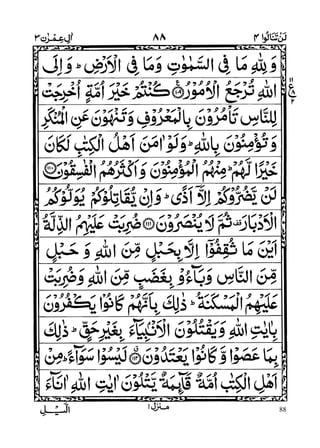 لن تنالوا ٤ ٨٨ اٰل عمرٰن ٣
وَ لِلّٰهِ مَا فِی السَّمٰوٰتِ وَمَا فِی الْاَرْضِؕ وَ اِلَی
اللّٰهِ تُرْجَعُ الْاُمُوْرُ ﴿۱۰۹﴾ كُنْتُمْ خَیْرَ اُمَّةٍ اُخْرِجَتْ
لِلنَّاسِ تَاْمُرُوْنَ بِالْمَعْرُوْفِ وَتَنْهَوْنَ عَنِ الْمُنْكَرِ
وَ تُؤْمِنُوْنَ بِاللّٰهِؕ وَلَوْ اٰمَنَ اَهْلُ الْكِتٰبِ لَكَانَ
خَیْرًا لَّهُمْؕ مِنْهُمُ الْمُؤْمِنُوْنَ وَ اَكْثَرُهُمُ الْفٰسِقُوْنَ ﴿۱۱۰﴾
لَنْ یَّضُرُّوْكُمْ اِلَّاۤ اَذًیؕ وَ اِنْ یُّقَاتِلُوْكُمْ یُوَلُّوْكُمُ
الْاَدْبَارَ۫ ثُمَّ لَا یُنْصَرُوْنَ ﴿۱۱۱﴾ ضُرِبَتْ عَلَیْهِمُ الذِّلَّةُ
اَیْنَ مَا ثُقِفُوْۤا اِلَّا بِحَبْلٍ مِّنَ اللّٰهِ وَ حَبْلٍ
مِّنَ النَّاسِ وَبَآءُوْ بِغَضَبٍ مِّنَ اللّٰهِ وَضُرِبَتْ
عَلَیْهِمُ الْمَسْكَنَةُؕ ذٰلِكَ بِاَنَّهُمْ كَانُوْا یَكْفُرُوْنَ
بِاٰیٰتِ اللّٰهِ وَیَقْتُلُوْنَ الْاَنْۢبِیَآءَ بِغَیْرِ حَقٍّؕ ذٰلِكَ
بِمَا عَصَوْا وَّ كَانُوْا یَعْتَدُوْنَ ﴿۱۱۲﴾ لَیْسُوْا سَوَآءًؕ مِنْ
اَهْلِ الْكِتٰبِ اُمَّةٌ قَآىِٕمَةٌ یَّتْلُوْنَ اٰیٰتِ اللّٰهِ اٰنَآءَ
الَّیْلِ
منزل ١
88